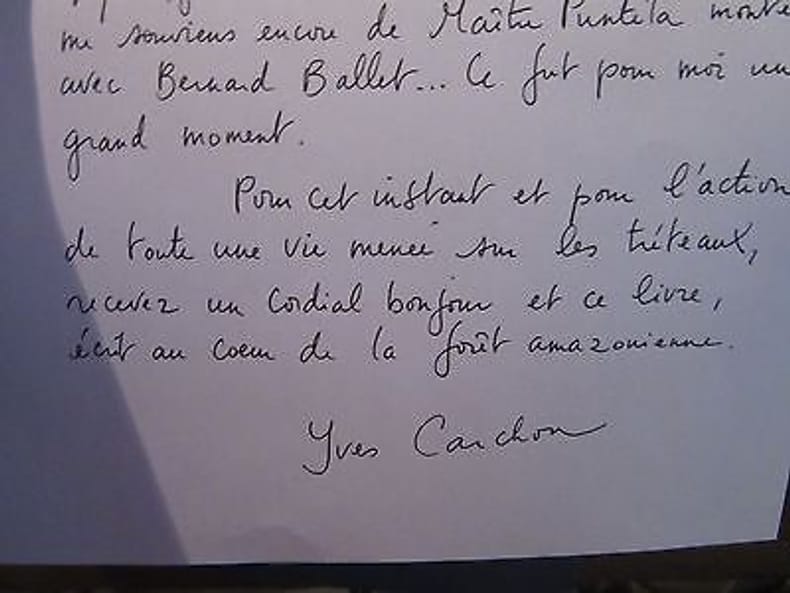 me souviens encore de Maître Puntila monté
avec Bernard Ballet... Ce fut pour moi un
grand moment.
Pour cet instant et pour l'action
de toute une vie menée sur les tréteaux,
recevez un cordial bonjour et ce livre,
écrit au coeur de la forêt amazonienne.
Yves Carchon